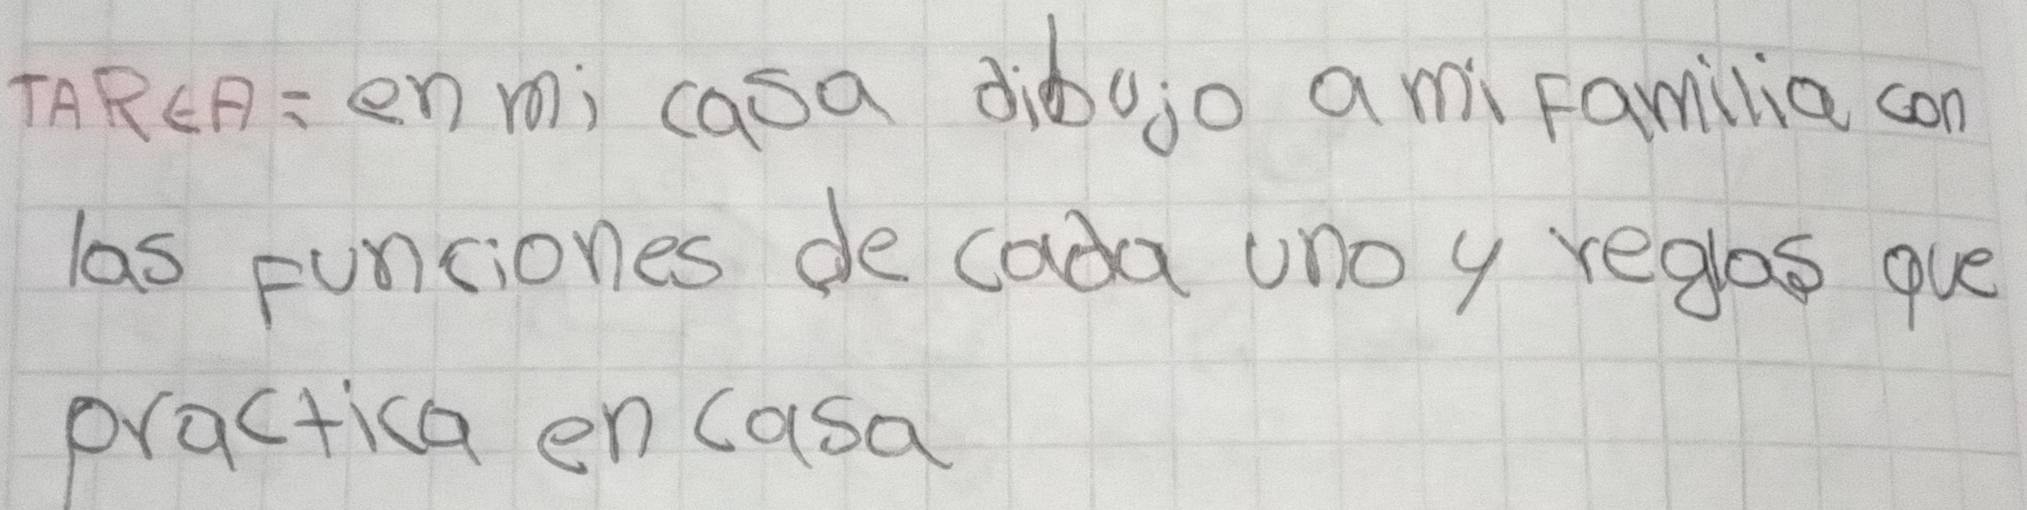 TAREA = en mi casa dibujo a mi Familia con
las Funciones de cada uno y reglas que
practica en casa